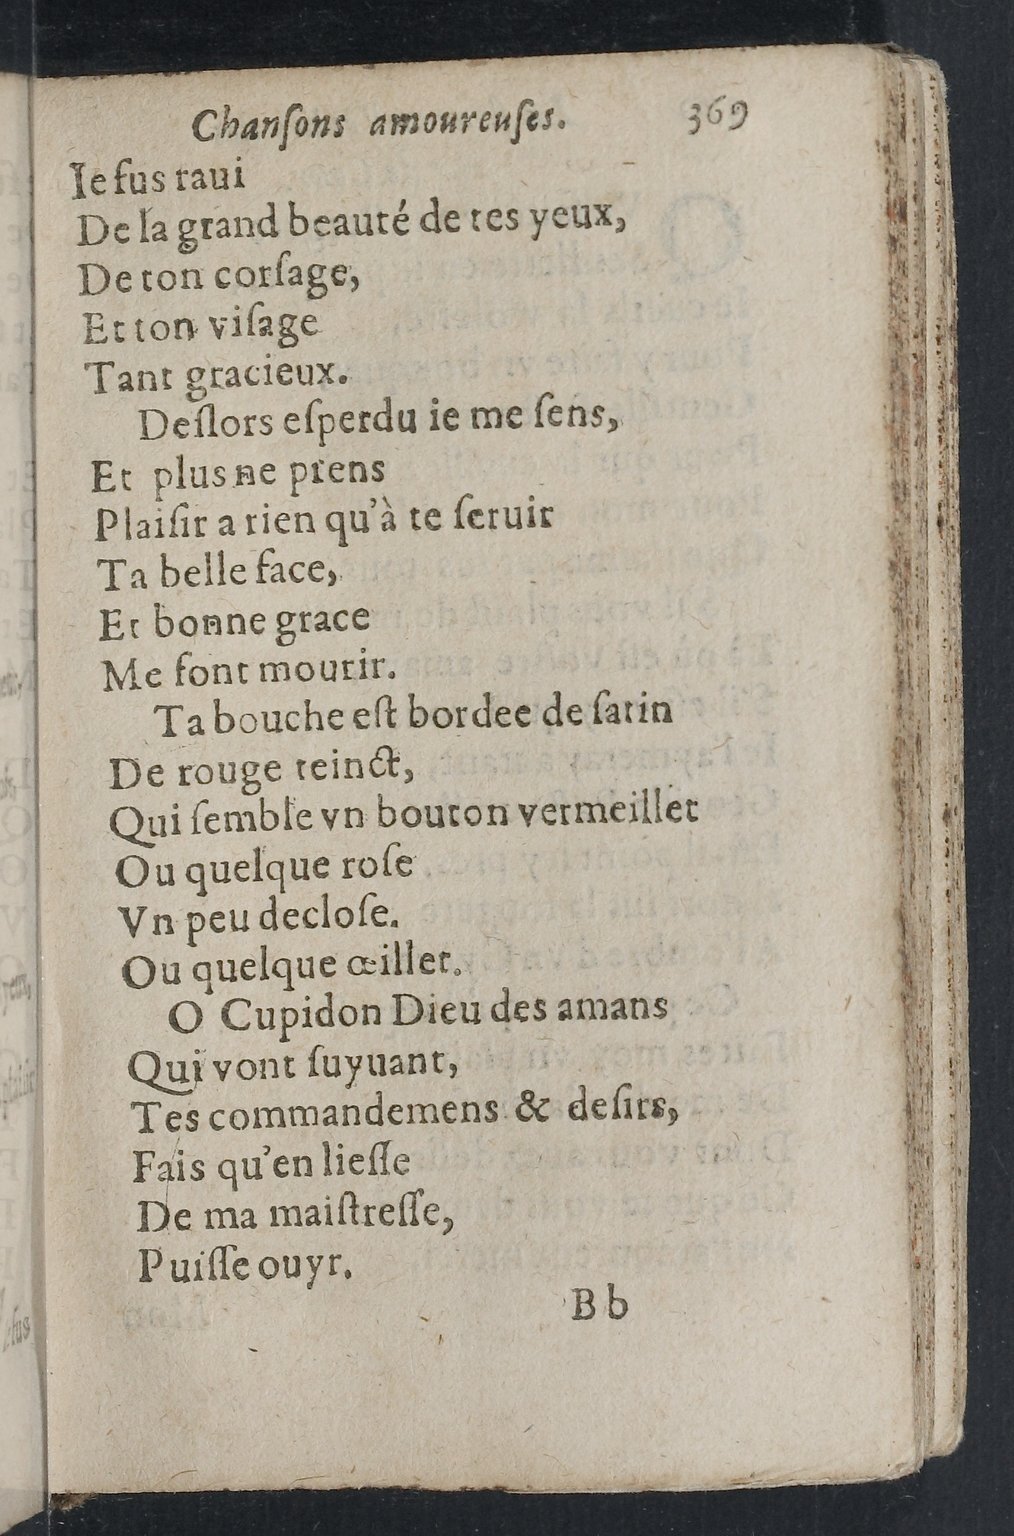 Chanſons amoureuſes. 369
Ie fus raui
De la grand beauté de tes yeux,
De ton corſage,
Et ton viſage
Tant gracieux.
Deſlors eſperdu ie me ſens,
Et plus ne prens
Plaiſir a rien qu'à te ſeruir
Ta belle face,
Et bonne grace
Me font mourir.
Ta bouche eſt bordee de ſatin
De rouge teinct,
Qui ſemble vn bouton vermeillet
Ou quelque roſe
Vn peu decloſe.
Ou quelque œillet.
O Cupidon Dieu des amans
Qui vont ſuyuant,
Tes commandemens & deſirs,
Fais qu'en lieſſe
De ma maiſtreſſe,
Puiſſe ouyr.
B b